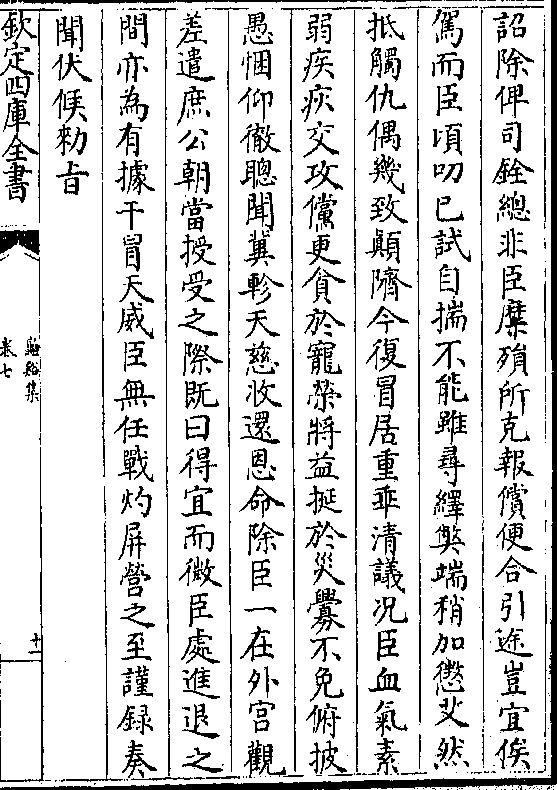 詔除俾司銓總非臣糜殞所克報償便合引途豈宜俟
駕而臣頃叨已試自揣不能雖尋繹弊端稍加懲艾然
抵觸仇偶幾致顛隮今復冒居重乖清議况臣血氣素
弱疾疢交攻儻更貪於寵榮將益挻於災釁不免俯披
愚悃仰徹聰聞冀軫天慈收還恩命除臣一在外宫觀
差遣庶公朝當授受之際既曰得宜而微臣處進退之
間亦為有據干冒天威臣無任戰灼屏營之至謹録奏
聞伏候勅旨
欽定四庫全書
卷七
十一